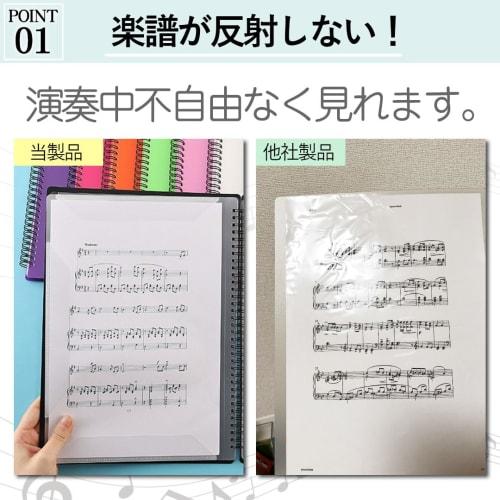 POINT
01
楽譜が反射しない！
演奏中不自由なく見れます。
当製品
他社製品